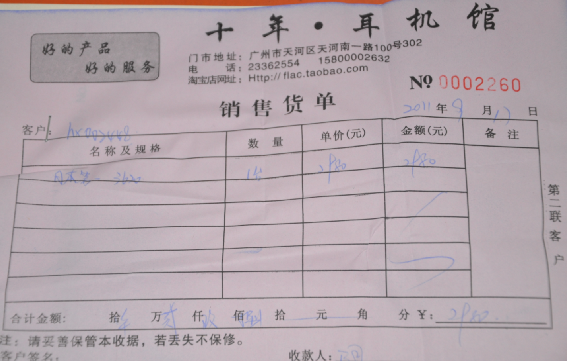 十年·耳机馆
好的产品
好的服务
门市地址：广州市天河区天河南一路100号302
电 话：23362554 15800002632
淘宝店网址：Http://flac.taobao.com
№ 0002260
销售货单
2011年9月17日
客户：
名称及规格 数量 单价(元) 金额(元) 备注
2980 2980
第二联客户
合计金额： 拾 万 仟 佰 拾 元 角 分 ¥：2980
注：请妥善保管本收据，若丢失不保修。
客户签名： 收款人：